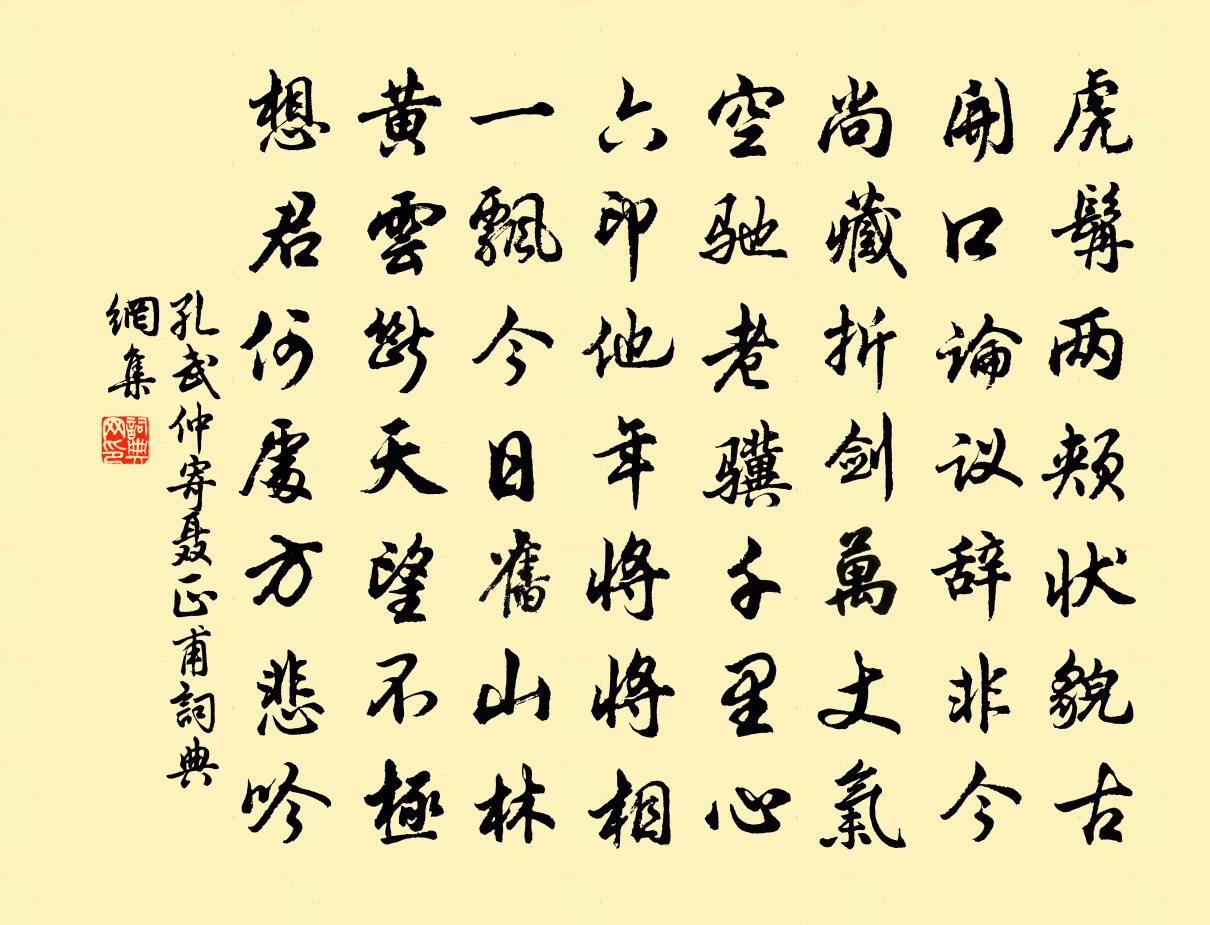 虎髯两颊状貌古
開口論议辞非今
尚藏折剑萬丈氣
空驰老骥千里心
六印他年将将相
一飘今日舊山林
黄雲断天望不極
想君何處方悲吟
孔武仲寄聂正甫詞典
網集
詞典
网印